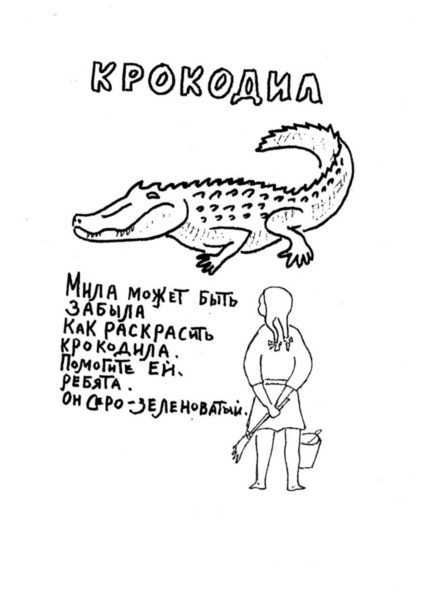 КРОКОДИЛ
МИЛА МОЖЕТ БЫТЬ
ЗАБЫЛА
КАК РАСКРАСИТЬ
КРОКОДИЛА.
ПОМОГИТЕ ЕЙ.
РЕБЯТА.
ОН СЕРО-ЗЕЛЕНОВАТЫЙ.